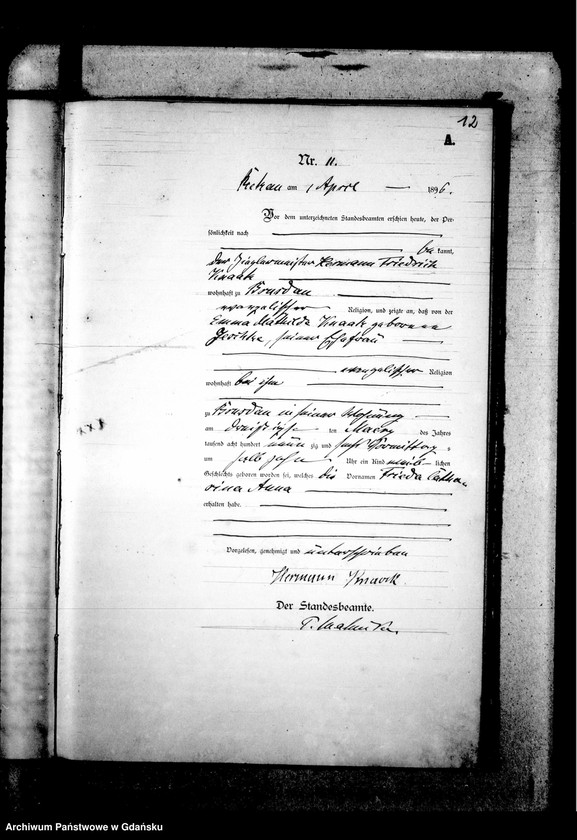 12
A.
Nr. 11.
am 1 April 1896.
Vor dem unterzeichneten Standesbeamten erschien heute, der Per-
sönlichkeit nach
be kannt,
der Zieglermeister Hermann Friedrich
Knaak
wohnhaft zu
evangelischer Religion, und zeigte an, daß von der
Emma Mathilde Knaak geborene
seiner Ehefrau
evangelischer Religion
wohnhaft bei ihm
zu in seiner Wohnung
am ten Maerz des Jahres
tausend acht hundert neun zig und sechs Vormittag s
um halb zehn Uhr ein Kind weib- lichen
Geschlechts geboren worden sei, welches die Vornamen Frieda Catha-
rina Anna
erhalten habe.
Vorgelesen, genehmigt und unterschrieben
Hermann Knaack
Der Standesbeamte.
Archiwum Państwowe w Gdańsku